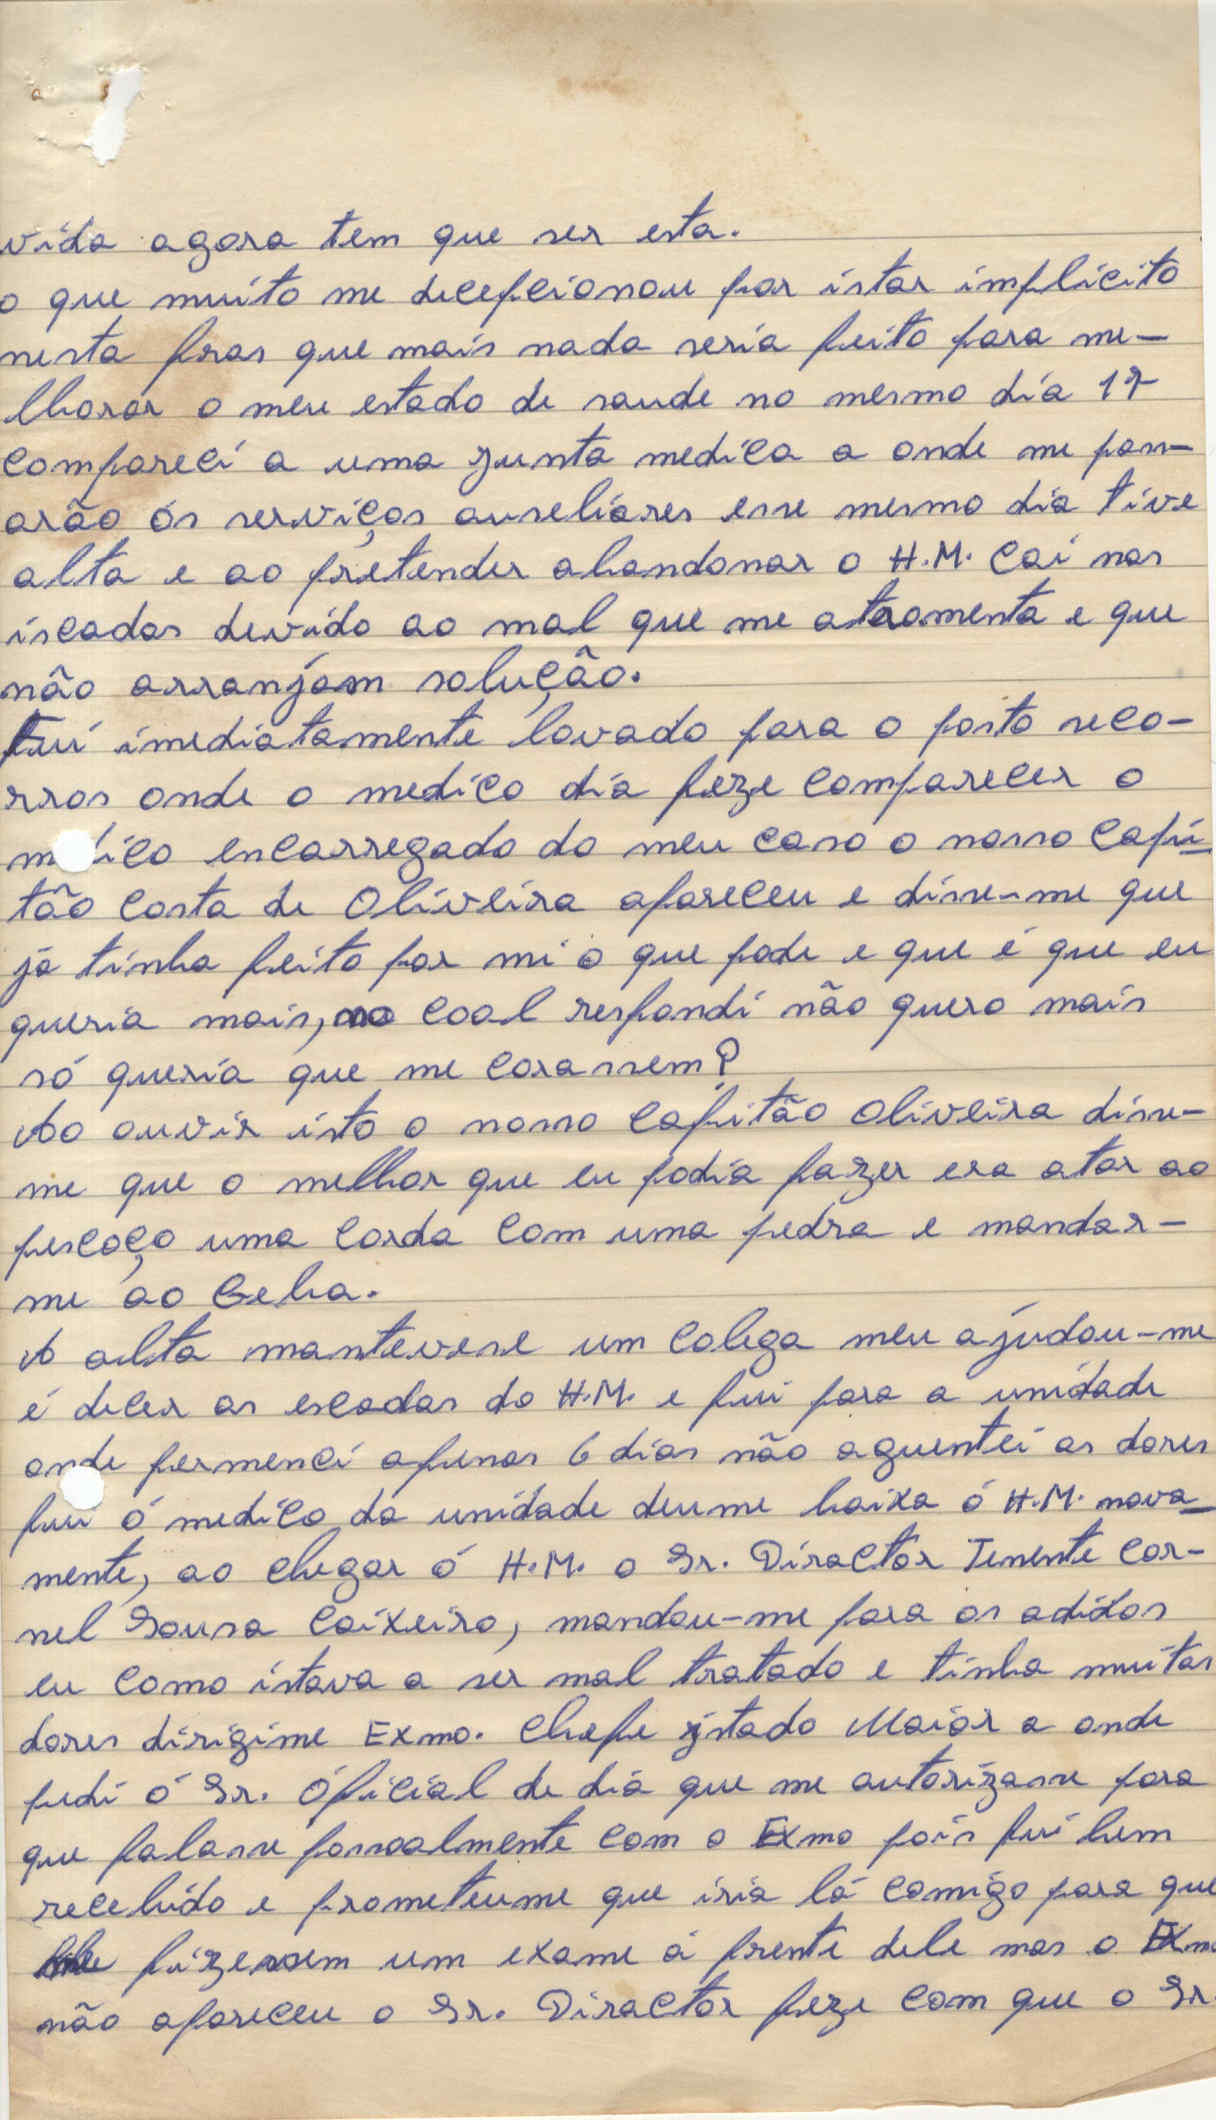 vida agora tem que ser esta.
o que muito me decepcionou por istar implicito
nesta fras que mais nada seria feito para me-
lhorar o meu estado de saude no mesmo dia 17
compareci a uma junta medica a onde me pass-
arão ós serviços auseliares esse mesmo dia tive
alta e ao pretender abandonar o H.M. cai nas
iscadas devido ao mal que me atromenta e que
não arranjam solução.
Fui imediatamente lovado para o posto seco-
rros onde o medico dia feze comparecer o
médico encarregado do meu caso o nosso Capi-
tão Costa de Oliveira apareceu e disse-me que
já tinha feito por mi o que pode e que é que eu
queria mais, ao coal respondi não quero mais
só queria que me corassem?
Ao ouvir isto o nosso Capitão Oliveira disse-
me que o melhor que eu podia fazer era atar ao
pescoço uma corda com uma pedra e mandar-
me ao Geba.
A alta mantevese um colega meu ajudou-me
é decer as escadas do H.M. e fui para a unidade
onde permenci apenas 6 dias não aguentei as dores
fui ó medico da unidade deume baixa ó H.M. nova-
mente, ao chegar ó H.M. o Sr. Diractor Tenente Cor-
nel Sousa Caixeiro, mandou-me para os adidos
eu como istava a ser mal tratado e tinha muitas
dores dirigime Exmo. Chefe istado Maior a onde
pedi ó Sr. Óficial de dia que me autorizasse para
que falasse possoalmente com o Exmo pois fui bem
recebido e prometeume que iria lá comigo para que
me fizessem um exame á frente dele mas o Exmo
não apareceu o Sr. Diractor feze com que o Sr.